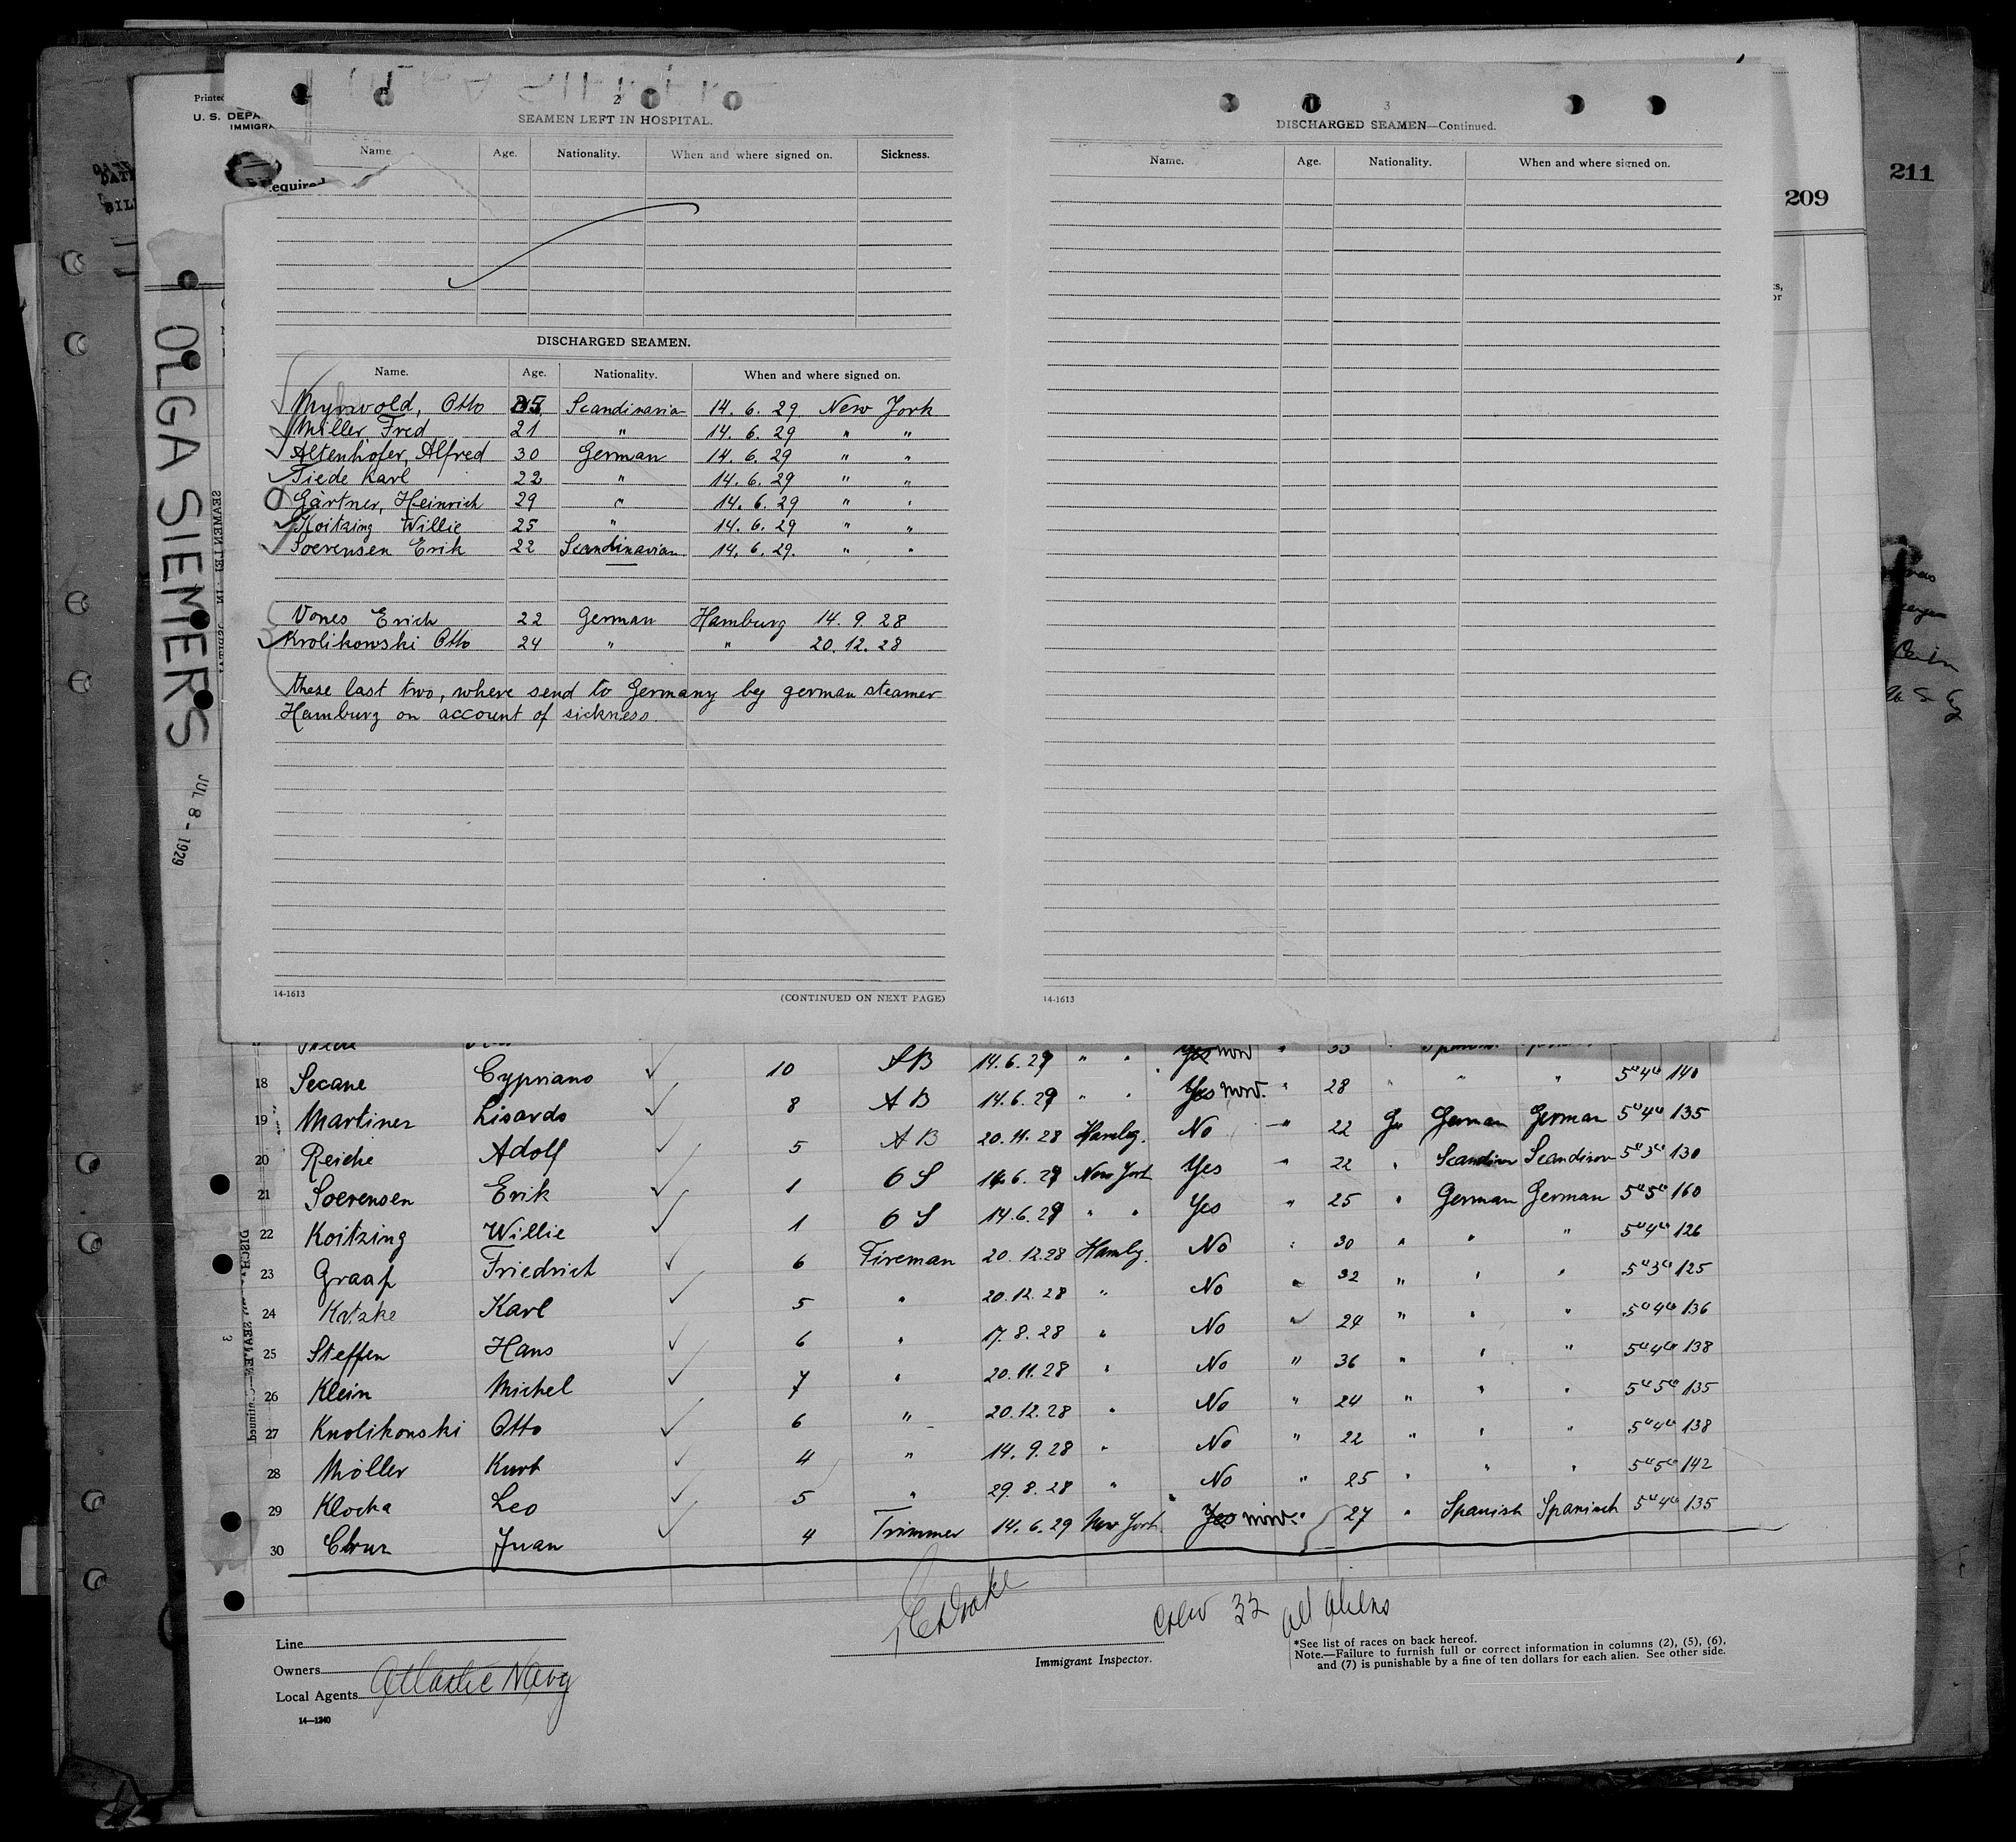 211
209
Printed
U. S. DEPA
IMMIGRA
Required
OLGA SIEMERS
JUL 8 - 1929
2
SEAMEN LEFT IN HOSPITAL.
Name. Age. Nationality. When and where signed on. Sickness.
DISCHARGED SEAMEN.
Name. Age. Nationality. When and where signed on.
Myrwold, Otto 25 Scandinavian 14. 6. 29 New York
Miller Fred 21 " 14. 6. 29 " "
Altenhofer, Alfred 30 German 14. 6. 29 " "
Tiede Karl 22 " 14. 6. 29 " "
Gärtner, Heinrich 29 " 14. 6. 29 " "
Koitzing Willie 25 " 14. 6. 29 " "
Soerensen Erik 22 Scandinavian 14. 6. 29. " "
Vones Erich 22 German Hamburg 14. 9. 28
Krolikowski Otto 24 " " 20. 12. 28
these last two, where send to Germany by german steamer
Hamburg on account of sickness.
14-1613
(CONTINUED ON NEXT PAGE)
3
DISCHARGED SEAMEN—Continued.
Name. Age. Nationality. When and where signed on.
14-1613
10 AB 14.6.29 " " Yes now " 33
18 Secane Cypriano 8 AB 14.6.29 " " Yes now. " 28 " " " 5"4" 140
19 Martinez Lisardo 5 AB 20.11.28 Hambg. No " 22 Ge German German 5"4" 135
20 Reiche Adolf 1 OS 14.6.29 New York Yes " 22 " Scandinav Scandinav 5"3" 130
21 Soerensen Erik 1 OS 14.6.29 " " Yes " 25 " German German 5"5" 160
22 Koitzing Willie 6 Fireman 20.12.28 Hambg. No " 30 " " " 5"4" 126
23 Graap Friedrich 5 " 20.12.28 " No " 32 " " " 5"3" 125
24 Katzke Karl 6 " 17.8.28 " No " 24 " " " 5"4" 136
25 Steffen Hans 7 " 20.11.28 " No " 36 " " " 5"4" 138
26 Klein Michel 6 " 20.12.28 " No " 24 " " " 5"5" 135
27 Krolikowski Otto 4 " 14.9.28 " No " 22 " " " 5"4" 138
28 Möller Kurt 5 " 29.8.28 " No " 25 " " " 5"5" 142
29 Klocka Leo 4 Trimmer 14.6.29 New York Yes now. " 27 " Spanish Spanisch 5"4" 135
30 Juan
Crew 32 all aliens
Line
Owners
Local Agents Atlantic Navg
14—1240
Immigrant Inspector.
*See list of races on back hereof.
Note.—Failure to furnish full or correct information in columns (2), (5), (6),
and (7) is punishable by a fine of ten dollars for each alien. See other side.